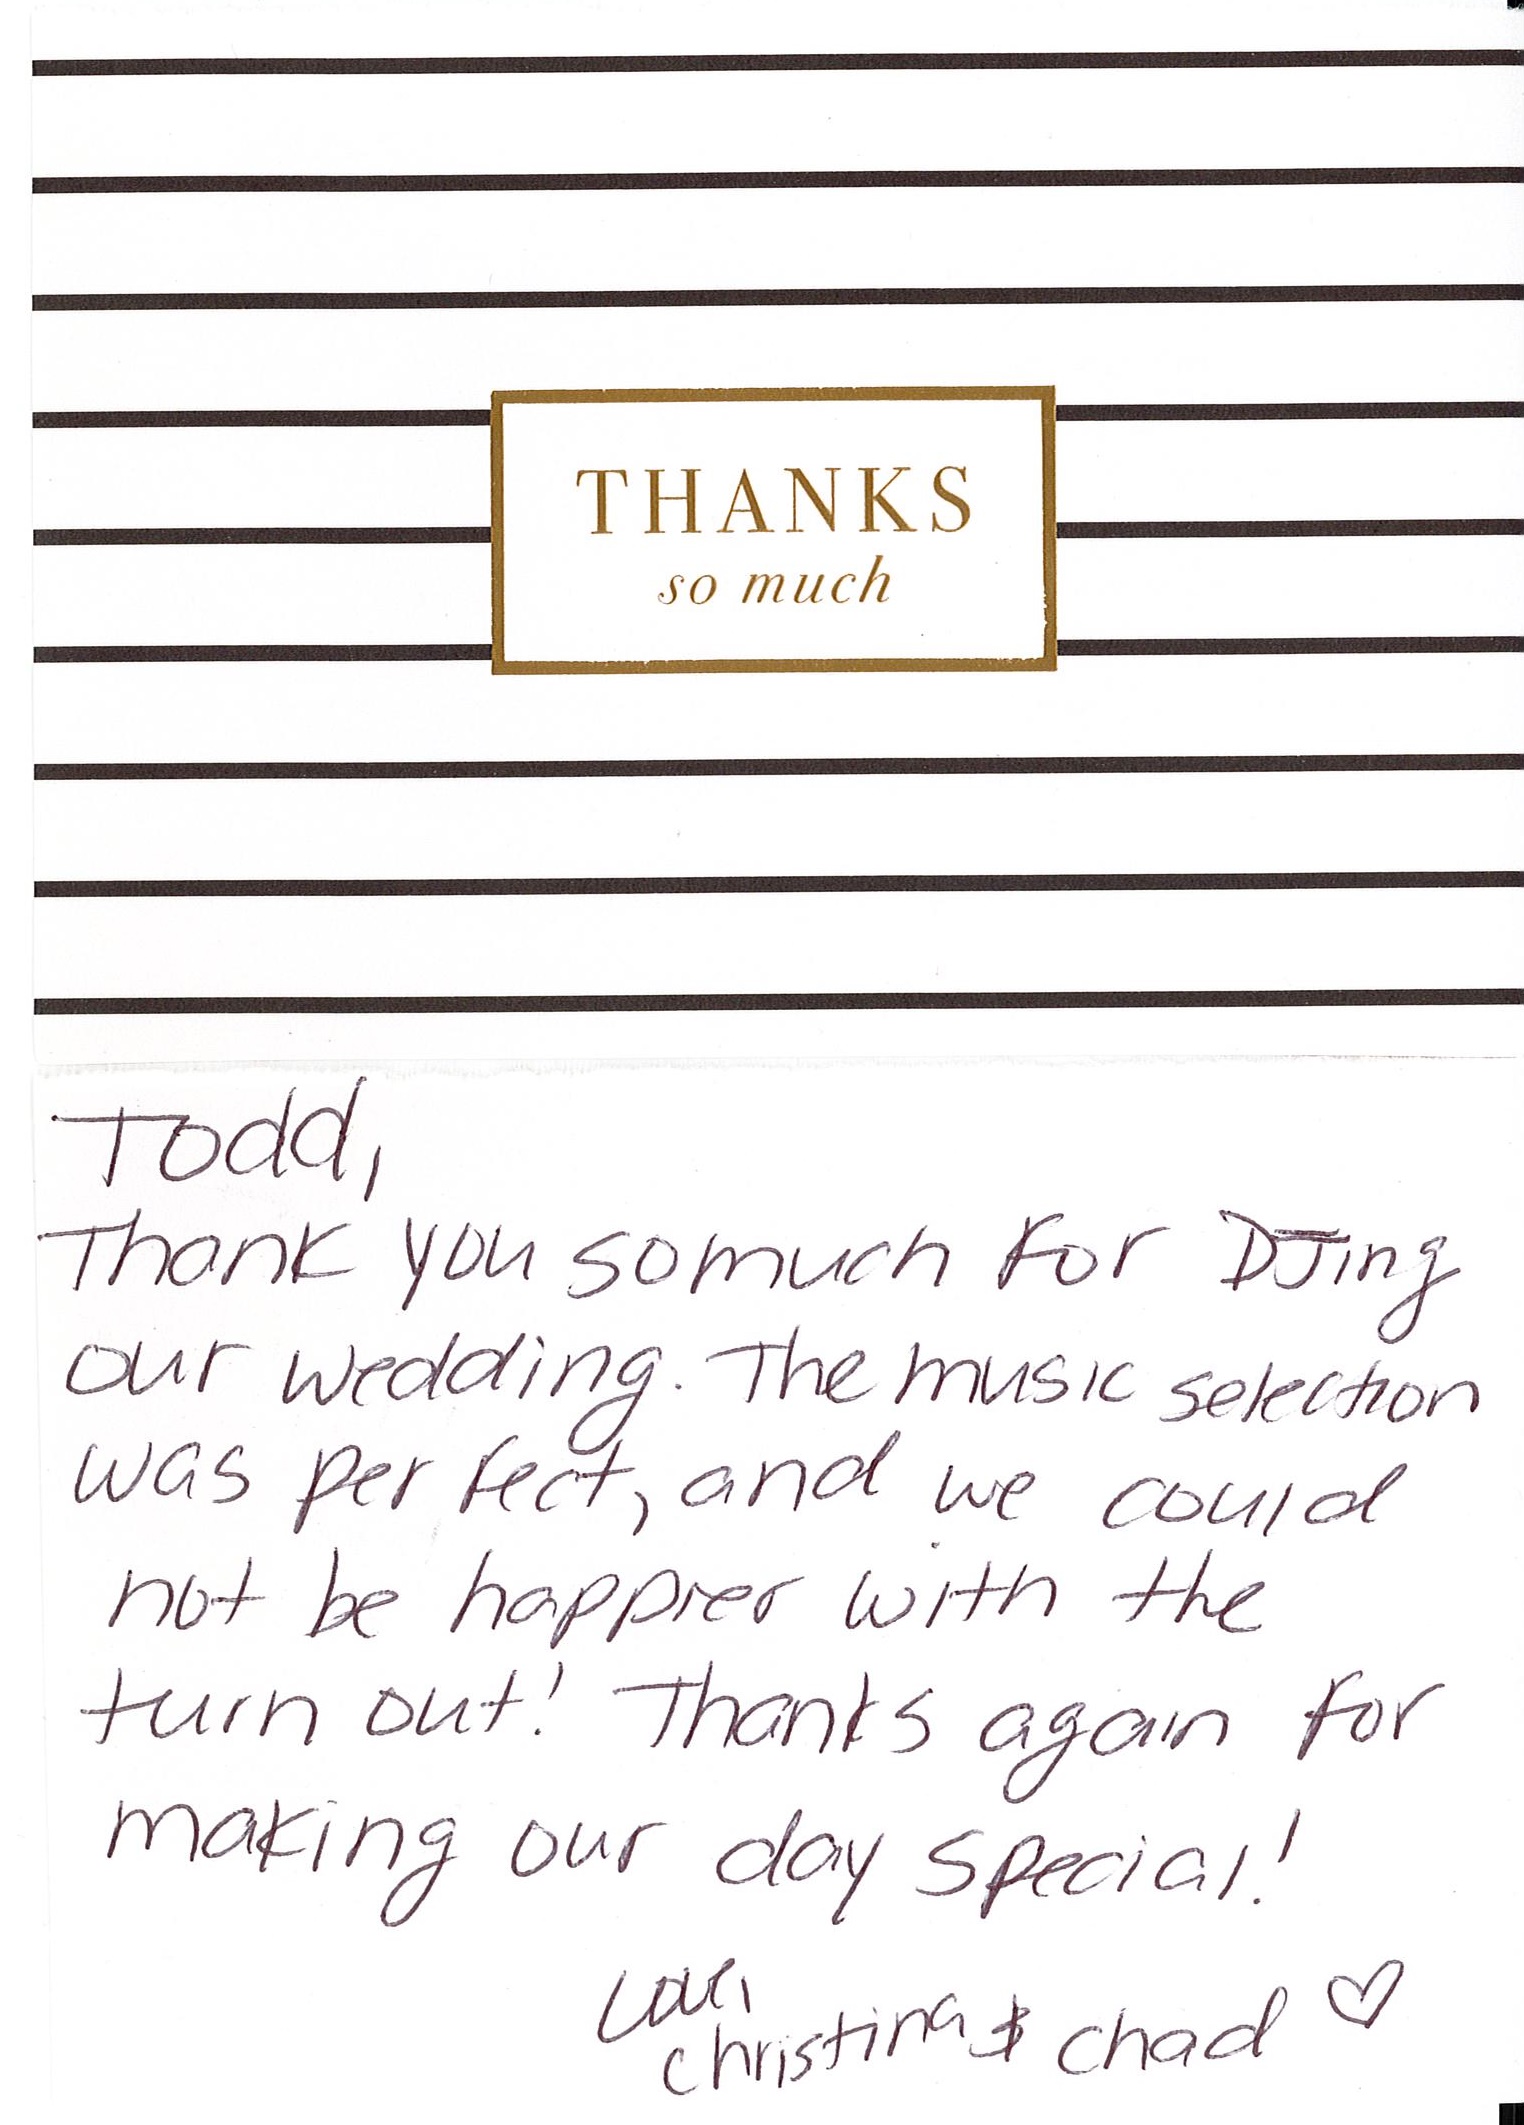 THANKS
so much
Todd,
Thank you so much for DJing
our wedding. The music selection
was perfect, and we could
not be happier with the
turn out! Thanks again for
making our day special!
Love,
Christina & Chad ♡